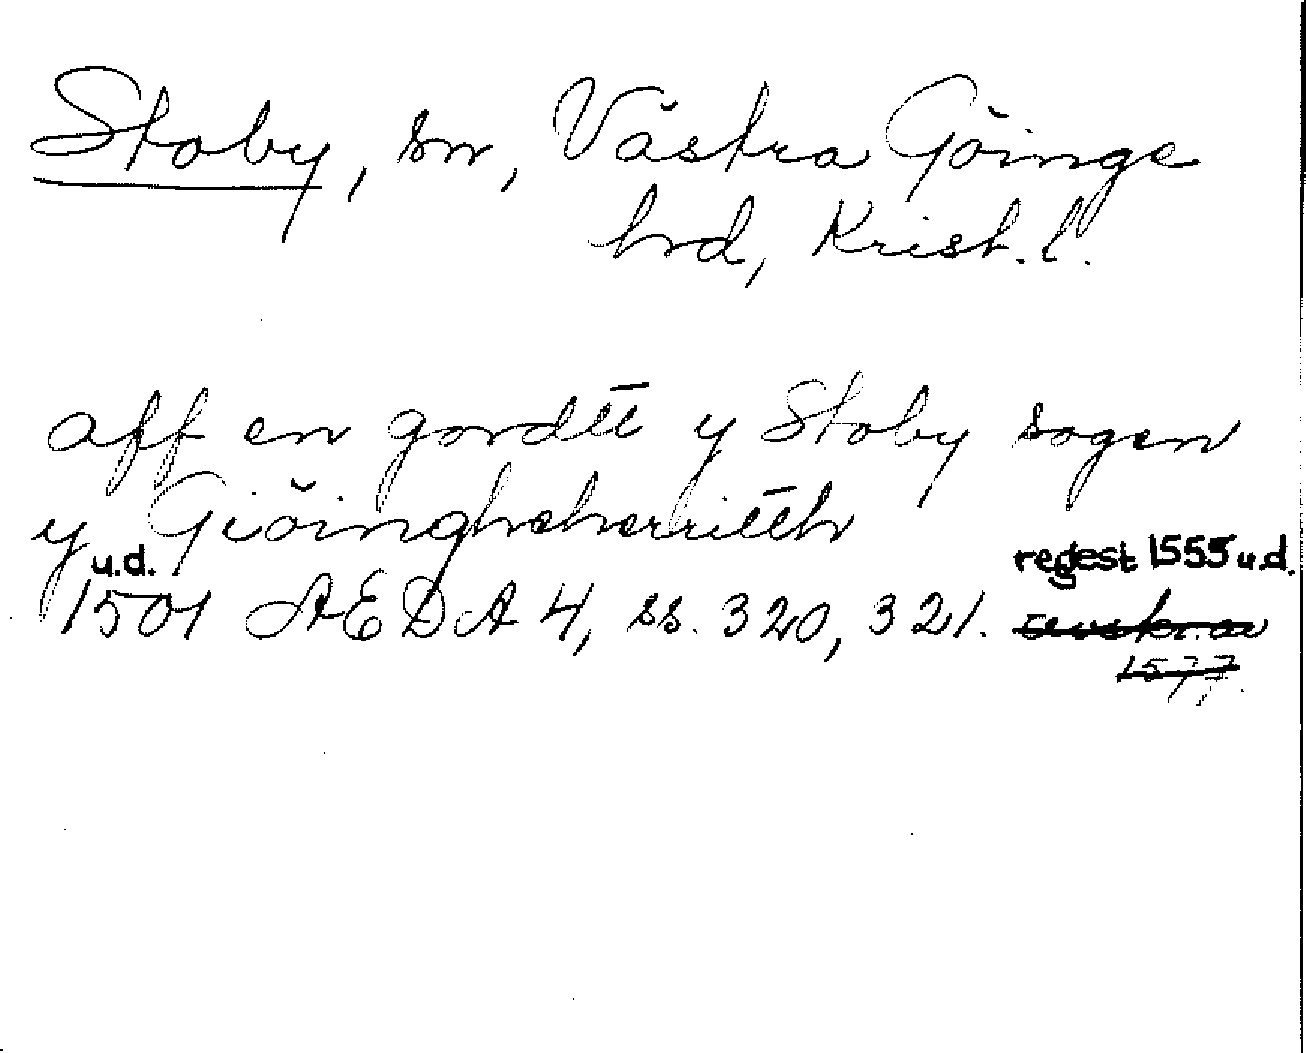 Stoby, sn, Västra Göinge
hrd, Krist. l.
aff en gordtt y Stoby sogen
y Giöingheherritth
u.d.
1501 AEDA 4, ss. 320, 321. regest 1555 u.d.
avskr. av
1577.